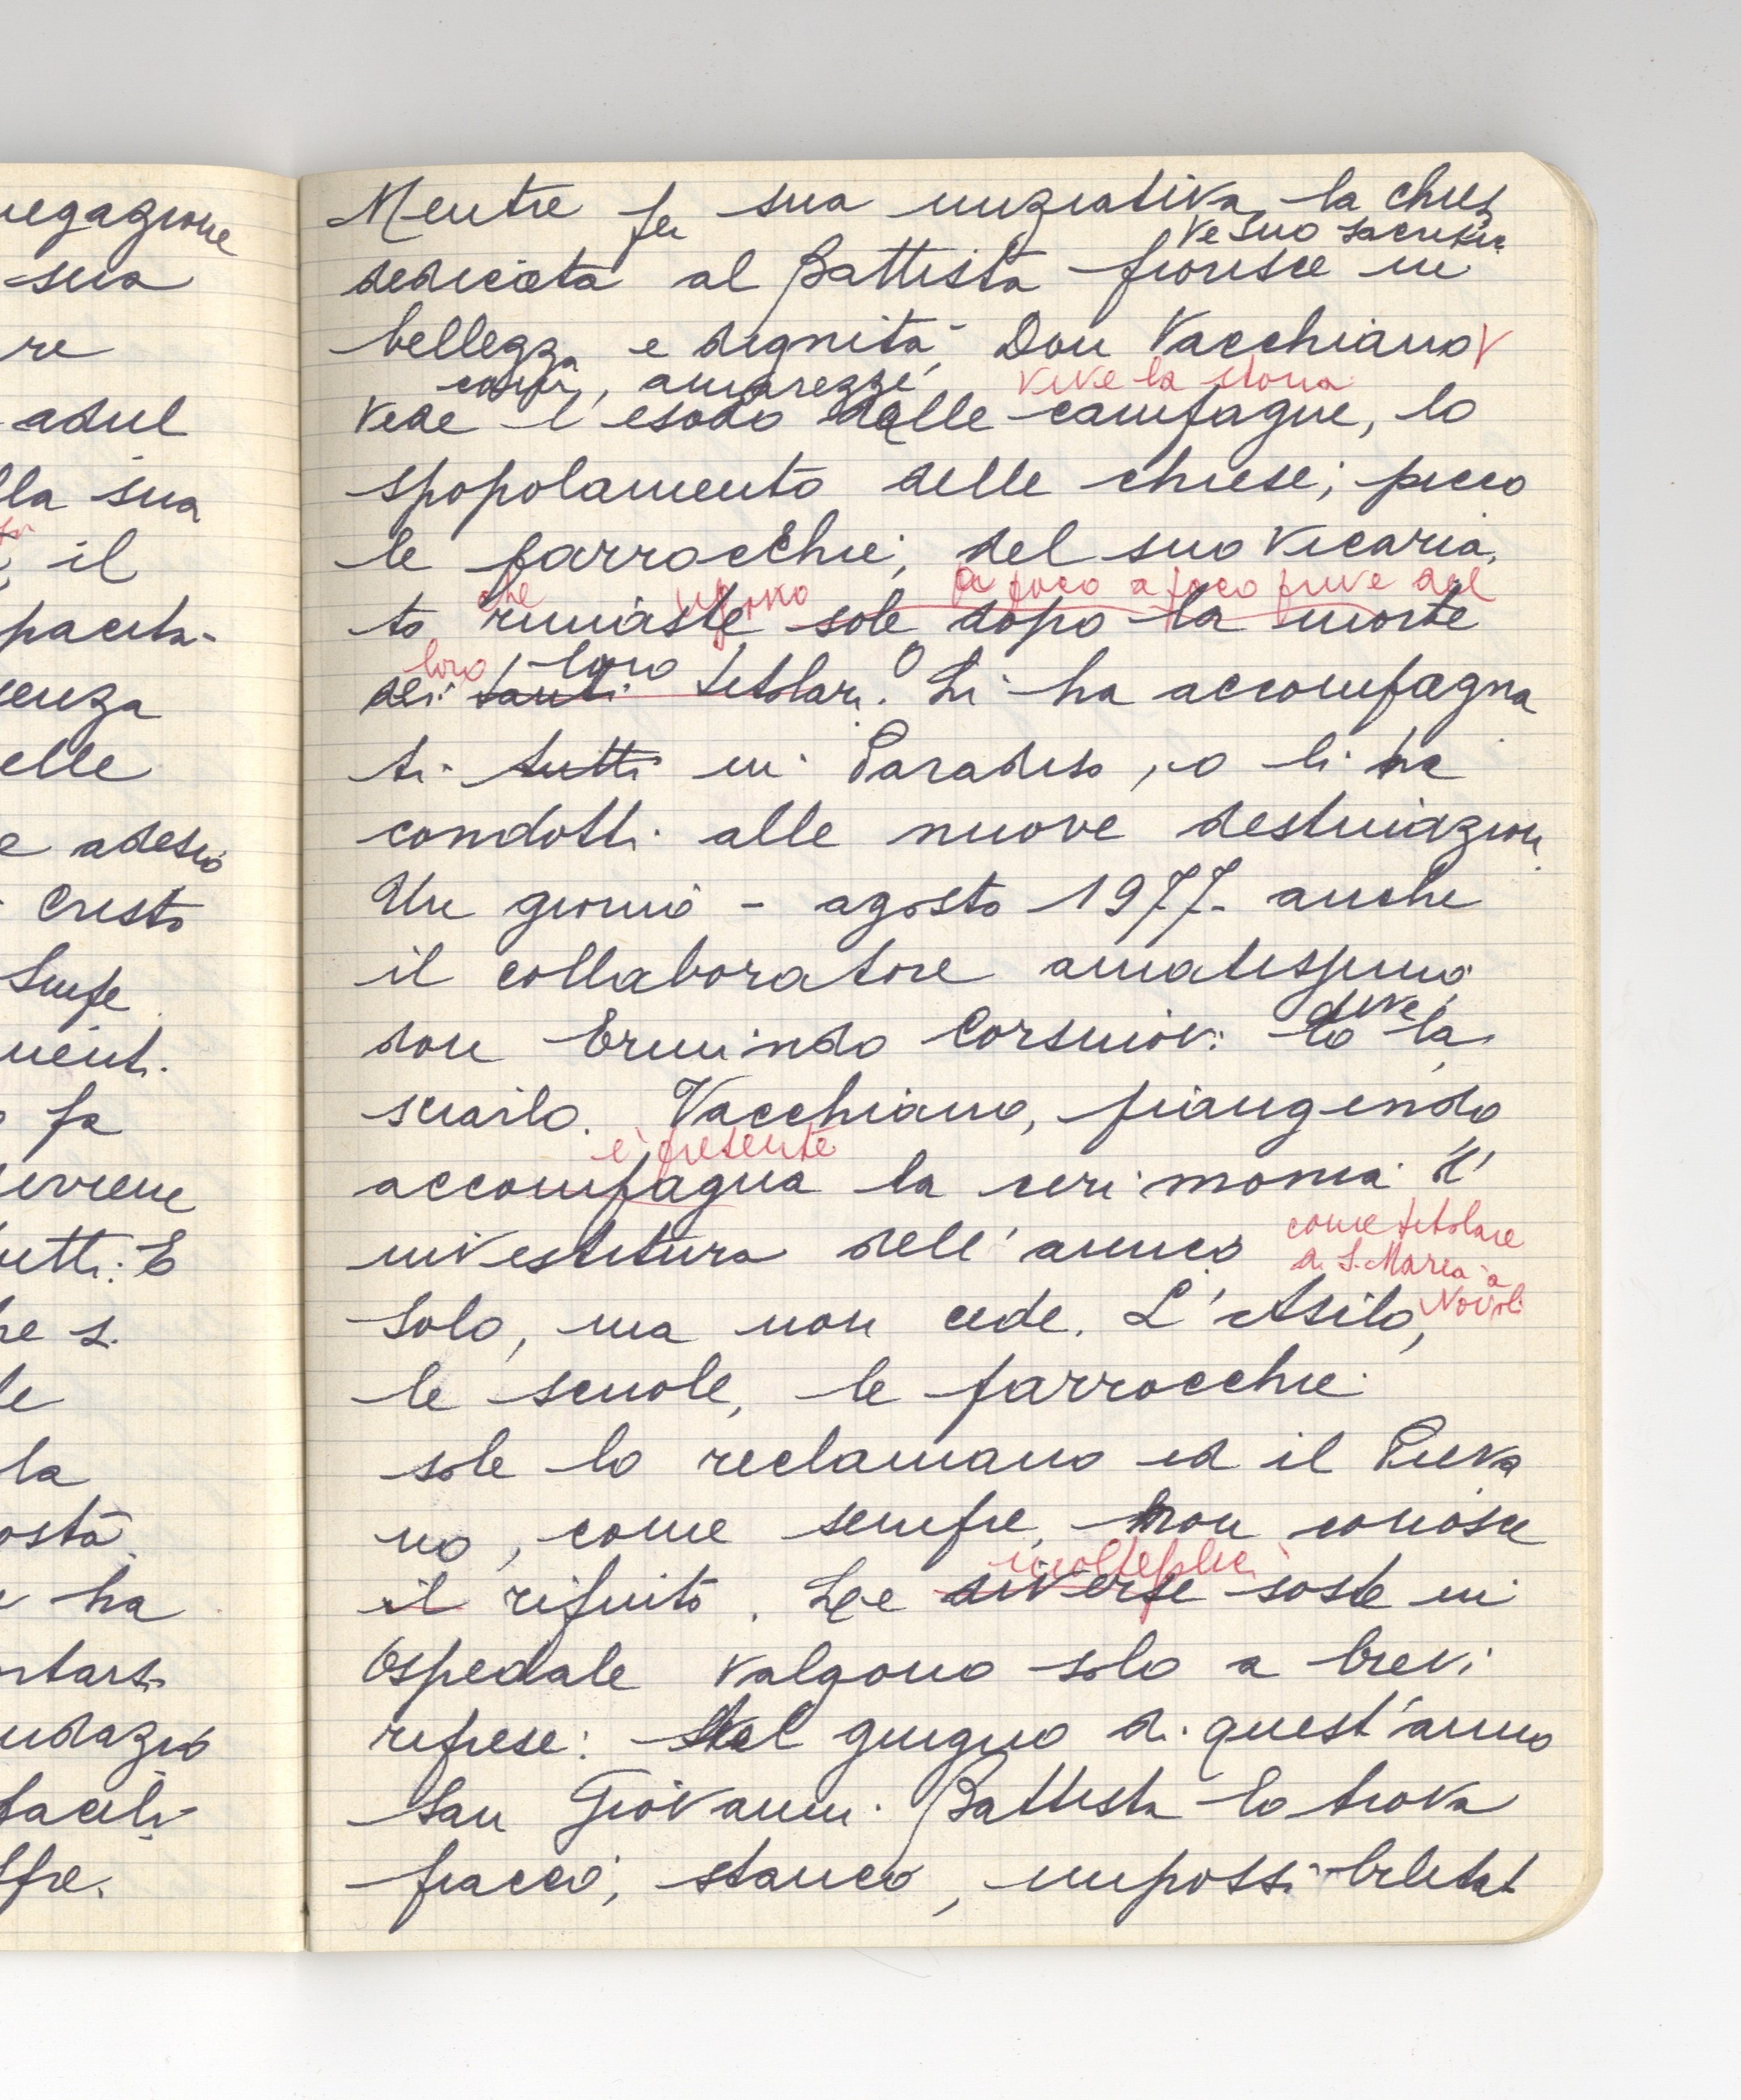 egazione
sua
re
adul
lla sua
il
pacita-
enza
elle
e adesio
Cristo
ment.
fa
tutti: E
he s.
le
la
ostà
ha
ntarsi
Mentre per sua iniziativa la chies
e suo sacrifici
dedicata al Battista fiorisce in
bellezza e dignità, Don Vacchiano
amarezze, vive la storia
vede l'esodo dalle campagne, lo
spopolamento delle chiese; picco
le parrocchie, del suo vicaria
che a poco a poco prive del
to rimaste sole dopo la morte
loro loro
dei tanti titolari. Li ha accompagna
ti tutti in Paradiso, o li ha
condotti alle nuove destinazioni
Un giorno - agosto 1977 - anche
il collaboratore amatissimo
deve
don Ermindo Corsinovi lo la
sciarlo. Vacchiano, piangendo
è presente
accompagna la cerimonia d'
investitura dell'amico
come titolare
di S. Maria a
Novoli
Solo, ma non cede. L'Asilo,
le scuole, le parrocchie
sole lo reclamano ed il Pieva
no, come sempre, non conosce
molteplici
il rifiuto. Le diverse soste in
Ospedale valgono solo a brevi
riprese: Nel giugno di quest'anno
San Giovanni Battista lo trova
fiacco, stanco, impossibilitat